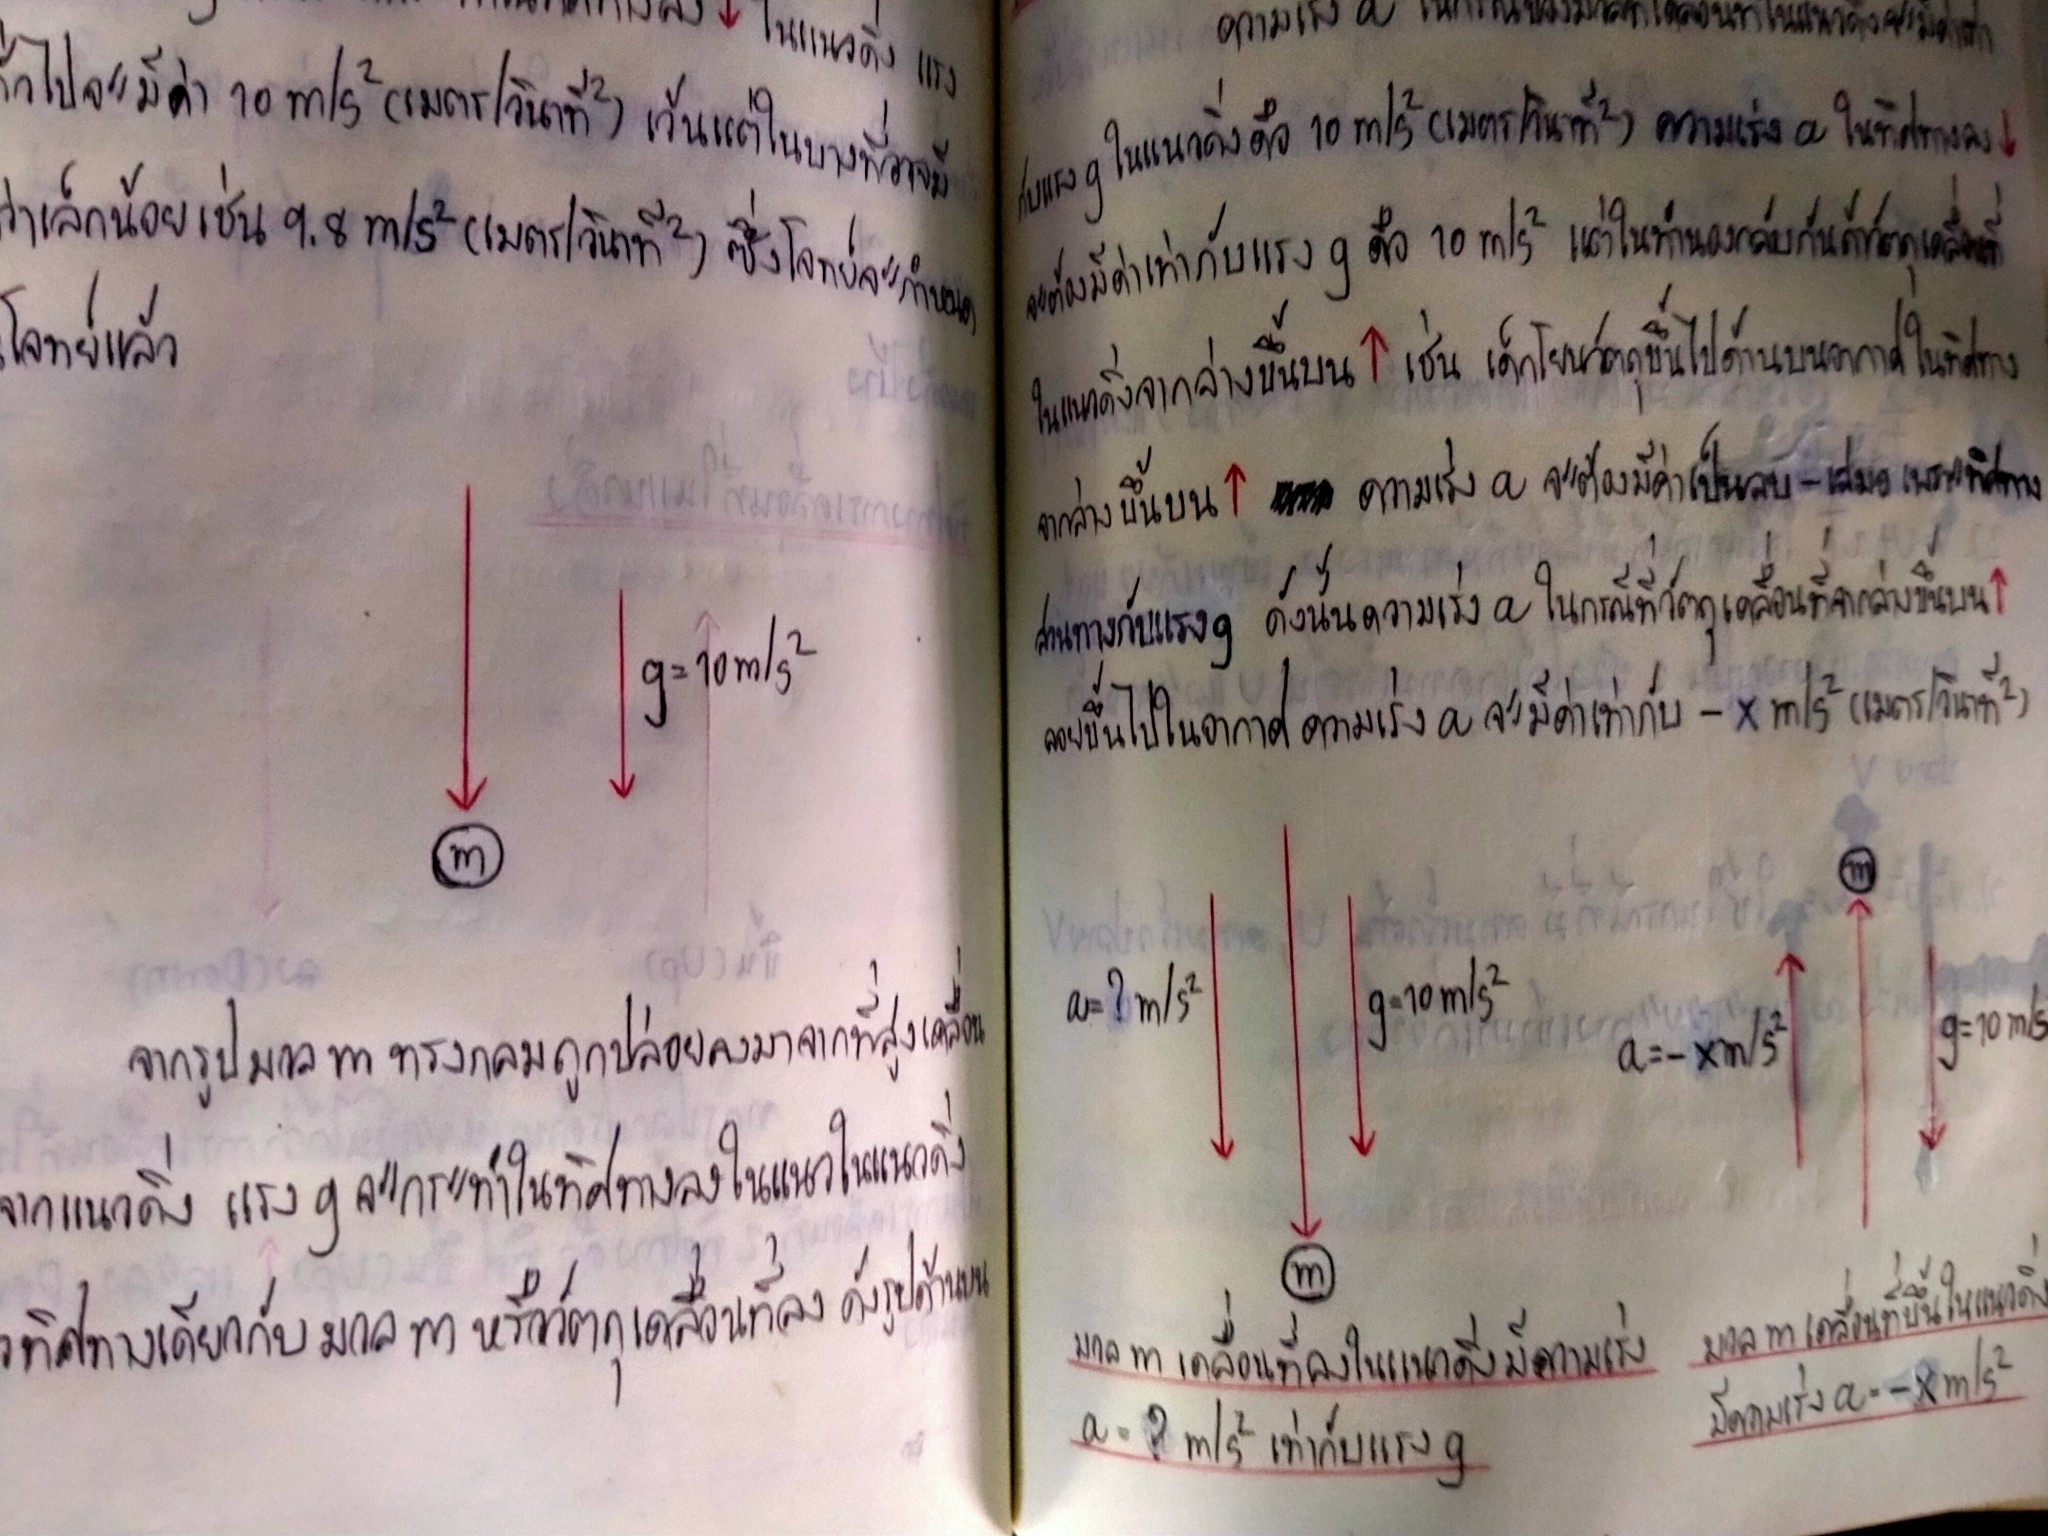 ในแนวดิ่ง แรง
ไปจะมีค่า 10 m/s² (เมตร/วินาที²) เว้นแต่ในบางที่อาจมี
ว่าเล็กน้อย เช่น 9.8 m/s² (เมตร/วินาที²) ซึ่งโจทย์จะกำหนด
โจทย์แล้ว
g = 10 m/s²
m
จากรูป มวล m ทรงกลมถูกปล่อยลงมาจากที่สูงเคลื่อน
จากแนวดิ่ง แรง g จะกระทำในทิศทางลงในแนวในแนวดิ่ง
ทิศทางเดียวกับ มวล m หรือวัตถุเคลื่อนที่ลง ดังรูปด้านบน
ความเร่ง a
กับแรง g ในแนวดิ่ง คือ 10 m/s² (เมตร/วินาที²) ความเร่ง a ในทิศทางลง ↓
จะต้องมีค่าเท่ากับแรง g คือ 10 m/s² แต่ในทำนองกลับกันถ้าวัตถุเคลื่อนที่
ในแนวดิ่งจากล่างขึ้นบน ↑ เช่น เด็กโยนวัตถุขึ้นไปด้านบนอากาศ ในทิศทาง
จากล่างขึ้นบน ↑ ความเร่ง a จะต้องมีค่าเป็นลบ - เสมอ เพราะทิศทาง
สวนทางกับแรง g ดังนั้นความเร่ง a ในกรณีที่วัตถุเคลื่อนที่จากล่างขึ้นบน ↑
ลอยขึ้นไปในอากาศ ความเร่ง a จะมีค่าเท่ากับ - x m/s² (เมตร/วินาที²)
m
a = ? m/s²
g = 10 m/s²
a = - x m/s²
g = 10 m/s
m
มวล m เคลื่อนที่ลงในแนวดิ่ง มีความเร่ง
a = ? m/s² เท่ากับแรง g
มวล m เคลื่อนที่ขึ้นในแนวดิ่ง
มีความเร่ง a = - x m/s²